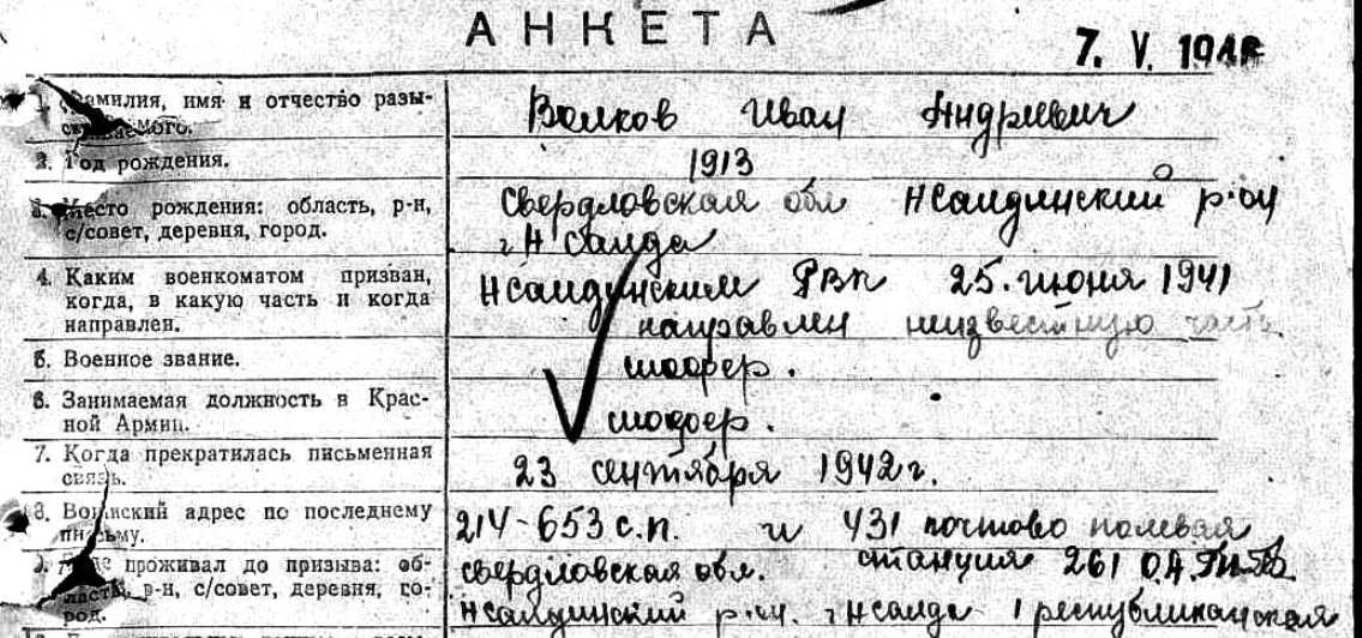 АНКЕТА
7. V. 194
1. Фамилия, имя и отчество разы-
скиваемого.
Волков Иван Андриевич
2. Год рождения.
1913
3. Место рождения: область, р-н,
с/совет, деревня, город.
Свердловская обл НСалдинский р-он
г Н Салда
4. Каким военкоматом призван,
когда, в какую часть и когда
направлен.
НСалдинским РВК 25. июня 1941
направлен неизвестную часть
5. Военное звание.
шофер.
6. Занимаемая должность в Крас-
ной Армии.
шофер.
7. Когда прекратилась письменная
связь.
23 сентября 1942 г.
8. Воинский адрес по последнему
письму.
214-653 с.п. и 431 почтово полевая
станция 261
9. Где проживал до призыва: об-
ласть, р-н, с/совет, деревня, го-
род.
свердловская обл.
НСалдинский р-он. г Нсалда 1 республиканская